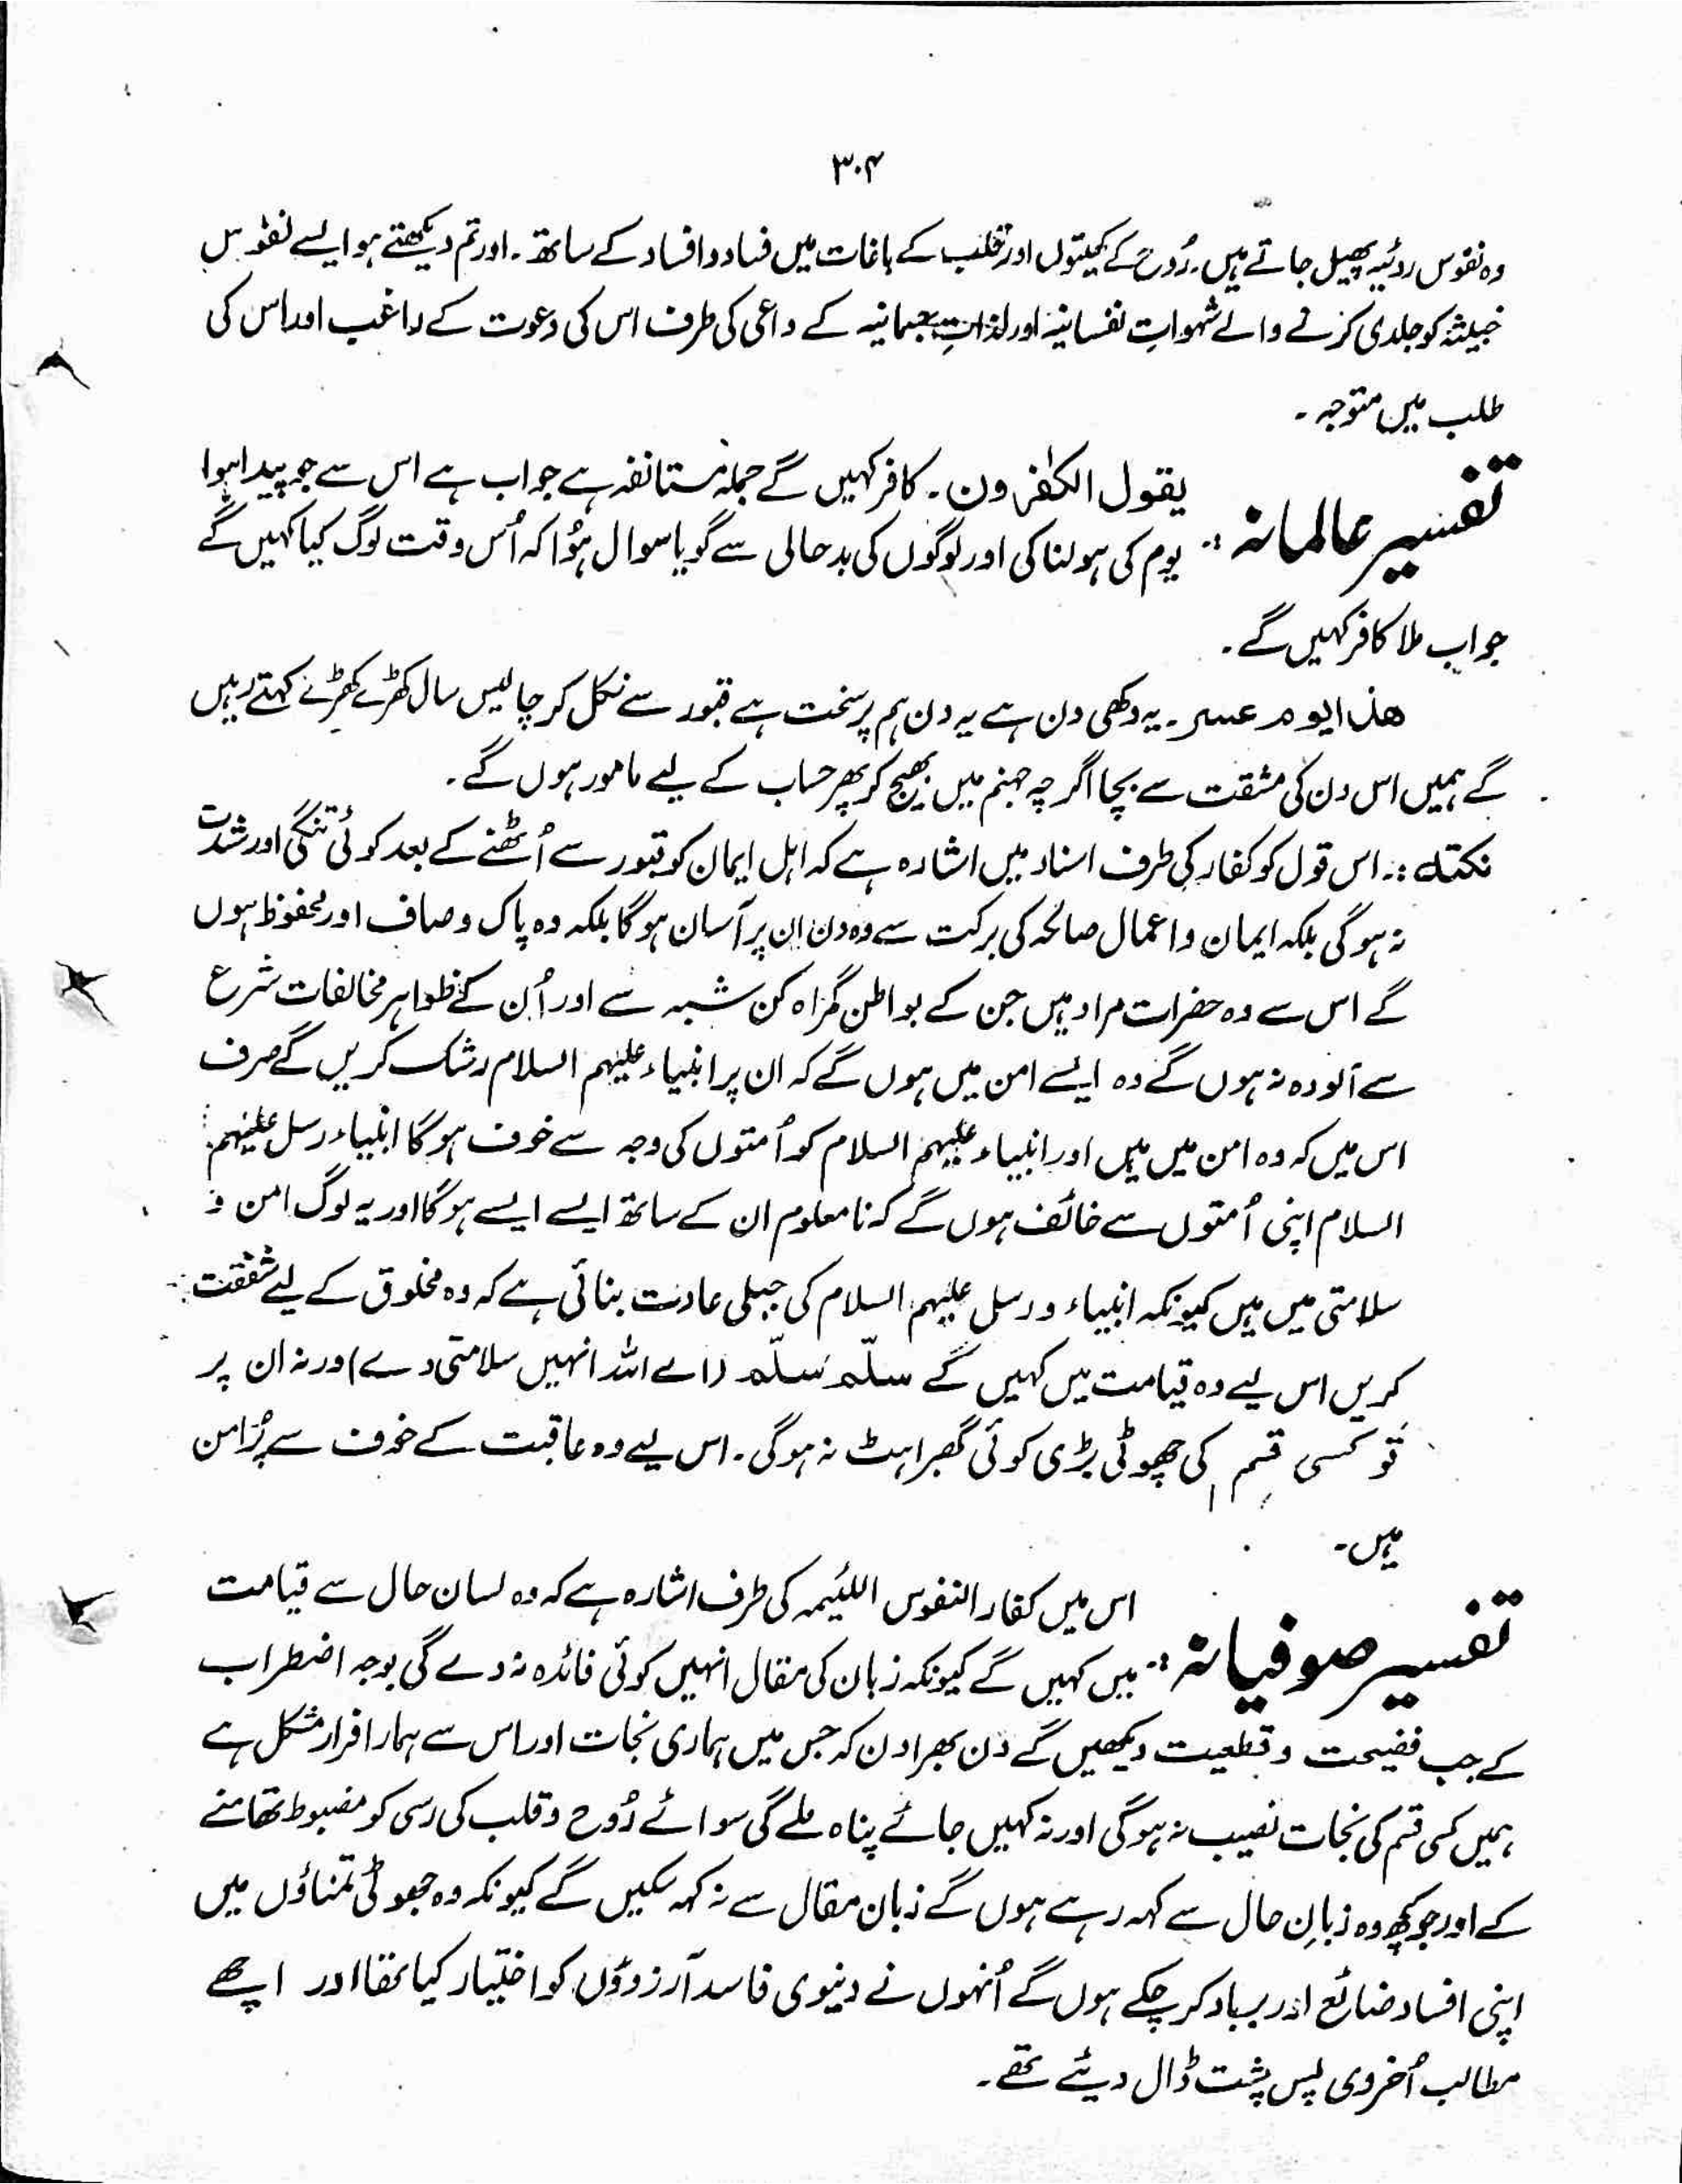 ۳۰۴
وہ نفوس ردئیہ پھیل جاتے ہیں۔ رُوح کے کھیتوں اور قلب کے باغات میں فساد و افساد کے ساتھ۔ اور تم دیکھتے ہو ایسے نفوس
خبیثہ کو جلدی کرنے والے شہواتِ نفسانیہ اور لذاتِ جسمانیہ کے داعی کی طرف اس کی دعوت کے راغب اور اس کی
طلب میں متوجہ۔
تفسیر عالمانہ :۔ یقول الکٰفرون۔ کافر کہیں گے جملہ مستانفہ ہے جواب ہے اس سے جو پیدا ہوا
یوم کی ہولناکی اور لوگوں کی بدحالی سے گویا سوال ہُوا کہ اُس وقت لوگ کیا کہیں گے
جواب ملا کافر کہیں گے۔
ھذا یوم عسر۔ یہ دکھی دن ہے یہ دن ہم پر سخت ہے قبور سے نکل کر چالیس سال کھڑے کھڑے کہتے رہیں
گے ہمیں اس دن کی مشقت سے بچا اگرچہ جہنم میں بھیج کر پھر حساب کے لیے مامور ہوں گے۔
نکتہ :۔ اس قول کو کفار کی طرف اسناد میں اشارہ ہے کہ اہل ایمان کو قبور سے اُٹھنے کے بعد کوئی تنگی اور شدت
نہ ہوگی بلکہ ایمان و اعمال صالحہ کی برکت سے وہ دن ان پر آسان ہوگا بلکہ وہ پاک و صاف اور محفوظ ہوں
گے اس سے وہ حضرات مراد ہیں جن کے بواطن گمراہ کن شبہ سے اور اُن کے ظواہر مخالفات شرع
سے آلودہ نہ ہوں گے وہ ایسے امن میں ہوں گے کہ ان پر انبیاء علیہم السلام رشک کریں گے صرف
اس میں کہ وہ امن میں ہیں اور انبیاء علیہم السلام کو اُمتوں کی وجہ سے خوف ہوگا انبیاء رسل علیہم
السلام اپنی اُمتوں سے خائف ہوں گے کہ نامعلوم ان کے ساتھ ایسے ایسے ہوگا اور یہ لوگ امن و
سلامتی میں ہیں کیونکہ انبیاء و رسل علیہم السلام کی جبلی عادت بنائی ہے کہ وہ مخلوق کے لیے شفقت
کریں اس لیے وہ قیامت میں کہیں گے سلّم سلّم (اے اللہ انہیں سلامتی دے) ورنہ ان پر
تو کسی قسم کی چھوٹی بڑی کوئی گھبراہٹ نہ ہوگی۔ اس لیے وہ عاقبت کے خوف سے پُرامن
ہیں۔
تفسیر صوفیانہ :۔ اس میں کفار النفوس اللئیمہ کی طرف اشارہ ہے کہ وہ لسان حال سے قیامت
میں کہیں گے کیونکہ زبان کی مقال انہیں کوئی فائدہ نہ دے گی بوجہ اضطراب
کے جب فضیحت و قطعیت دیکھیں گے دن بھرا دن کہ جس میں ہماری نجات اور اس سے ہمارا فرار مشکل ہے
ہمیں کسی قسم کی نجات نصیب نہ ہوگی اور نہ کہیں جائے پناہ ملے گی سوائے رُوح و قلب کی رسی کو مضبوط تھامنے
کے اور جو کچھ وہ زبانِ حال سے کہہ رہے ہوں گے زبان مقال سے نہ کہہ سکیں گے کیونکہ وہ جھوٹی تمناؤں میں
اپنی افساد ضائع اور برباد کر چکے ہوں گے اُنہوں نے دنیوی فاسد آرزوؤں کو اختیار کیا تھا اور اچھے
مطالب اُخروی پس پشت ڈال دیئے تھے۔